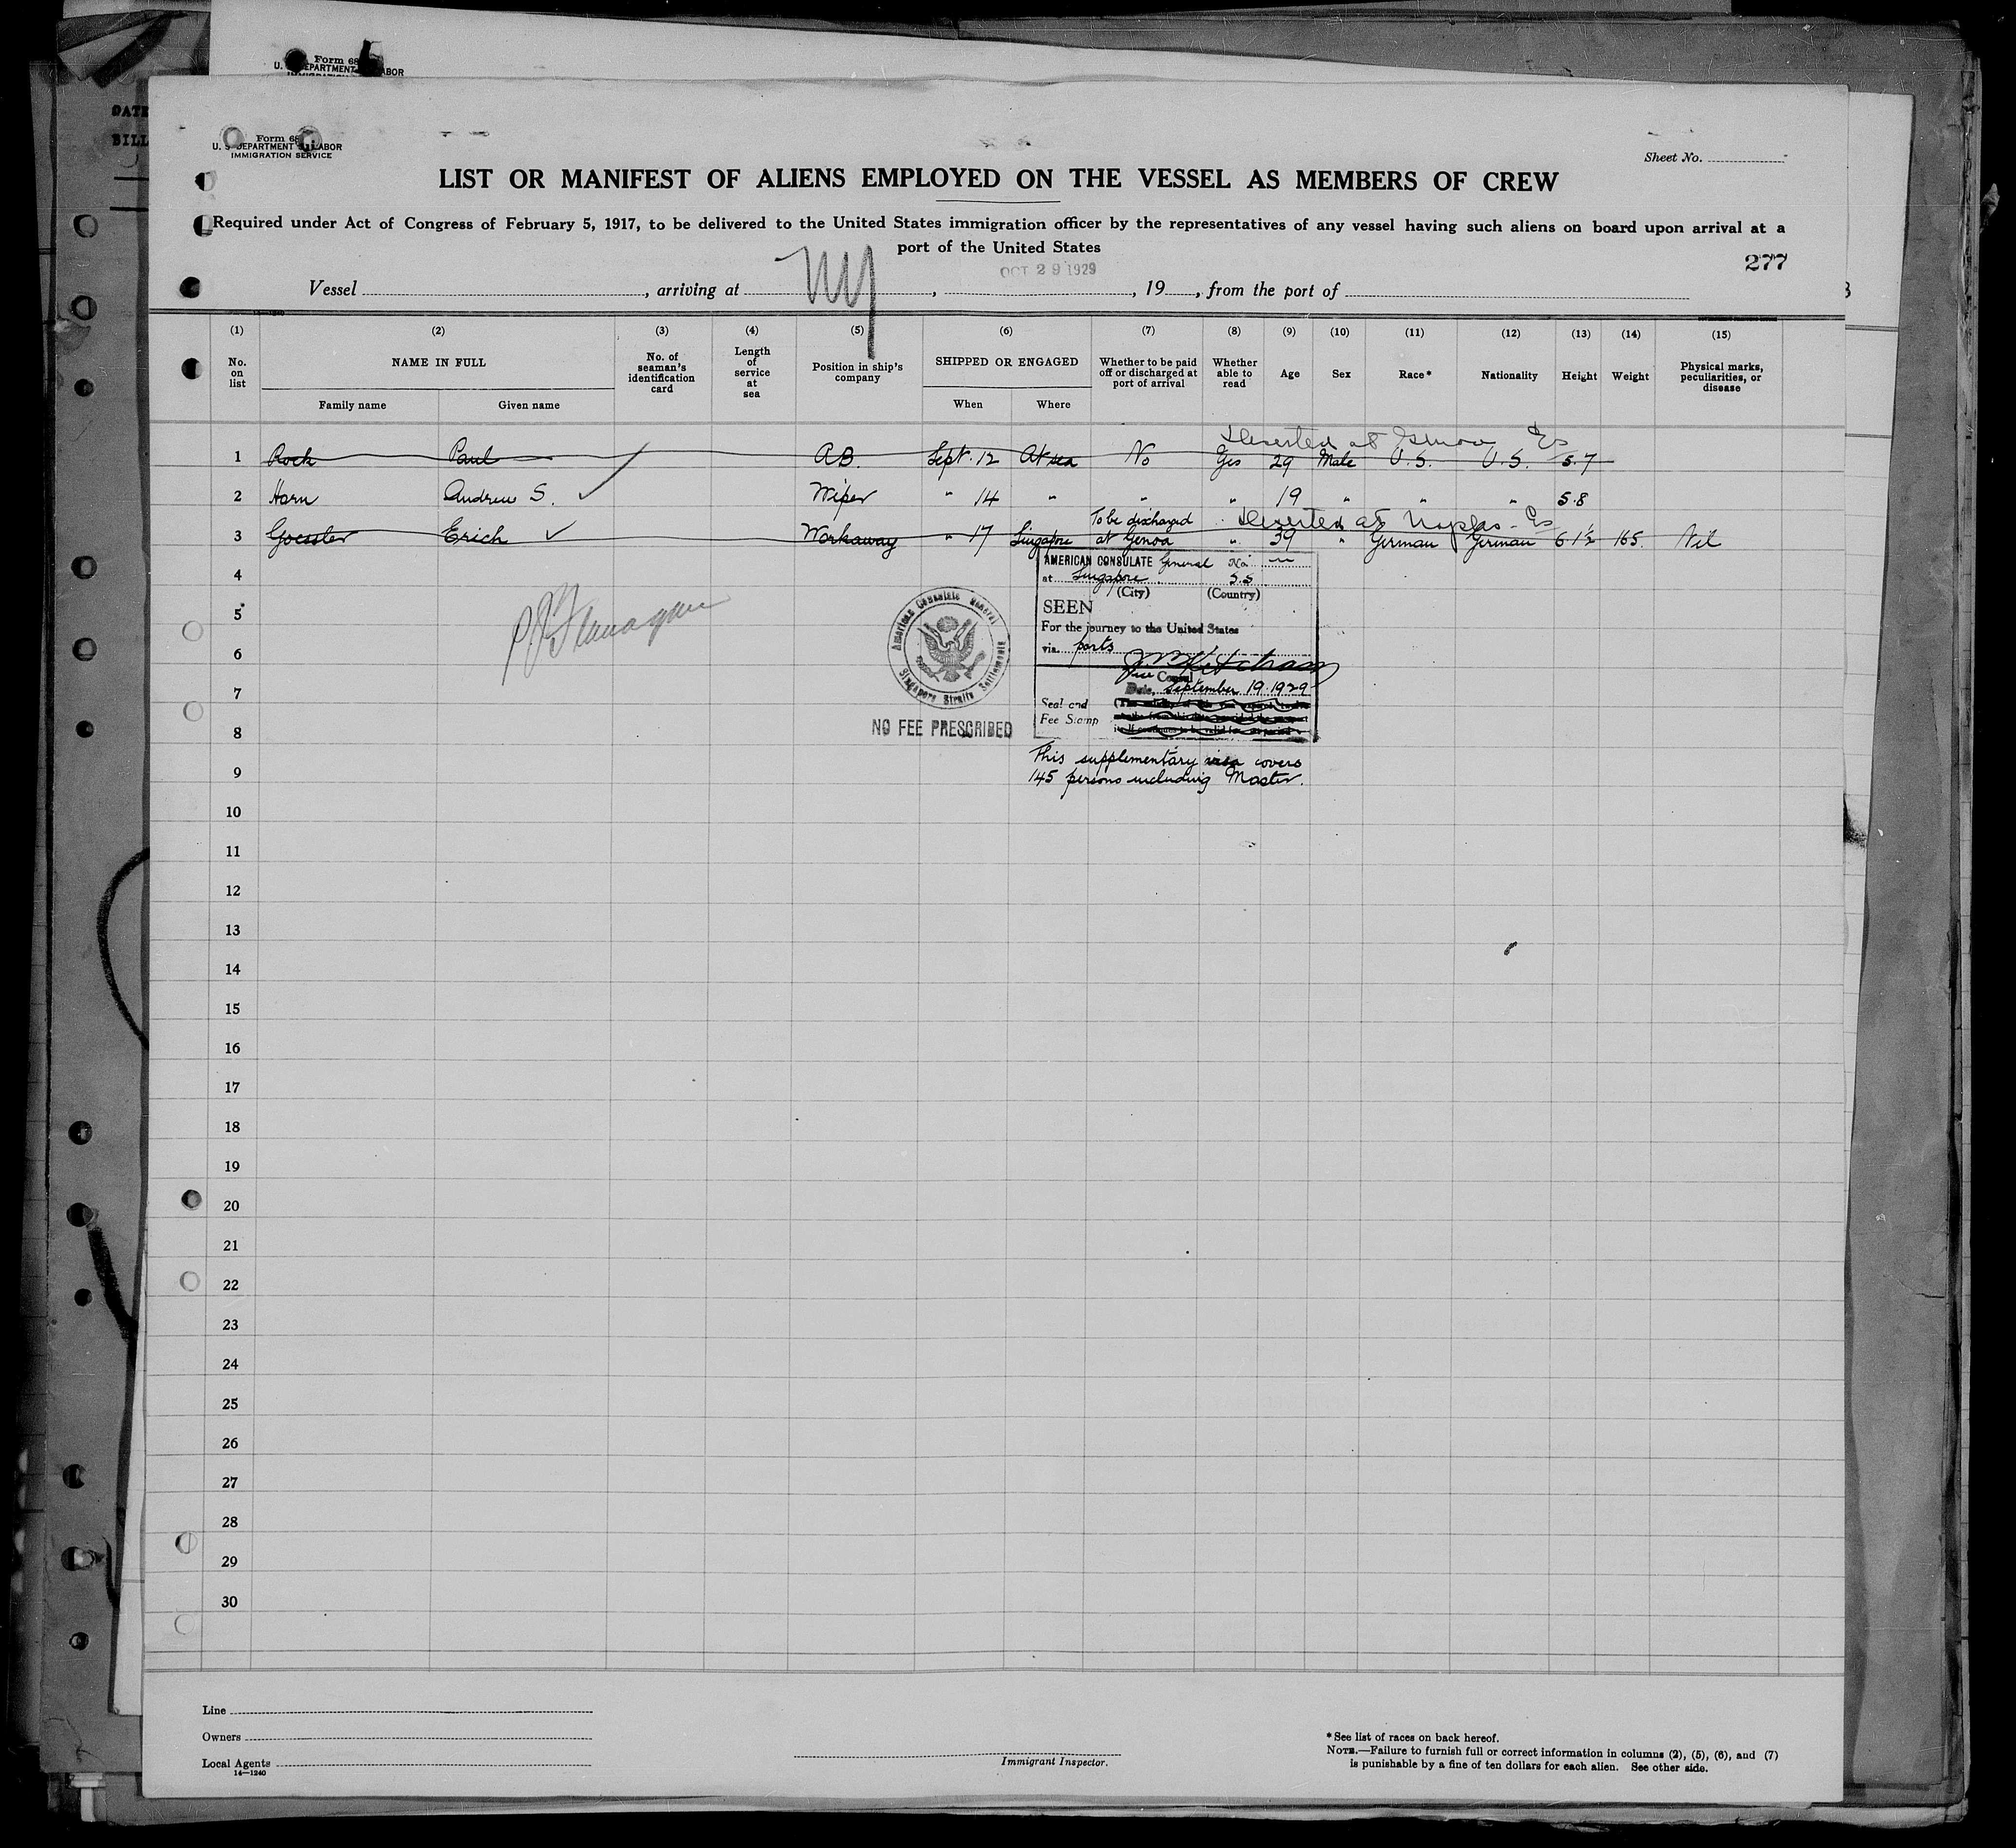 Form 68
U. DEPARTMENT LABOR
DATE
BILL
Form 68
U. S. DEPARTMENT OF LABOR
IMMIGRATION SERVICE
Sheet No.
LIST OR MANIFEST OF ALIENS EMPLOYED ON THE VESSEL AS MEMBERS OF CREW
Required under Act of Congress of February 5, 1917, to be delivered to the United States immigration officer by the representatives of any vessel having such aliens on board upon arrival at a
port of the United States
277
OCT 29 1929
Vessel , arriving at NY , , 19 , from the port of
(1) (2) (3) (4) (5) (6) (7) (8) (9) (10) (11) (12) (13) (14) (15)
No. on list NAME IN FULL No. of seaman's identification card Length of service at sea Position in ship's company SHIPPED OR ENGAGED Whether to be paid off or discharged at port of arrival Whether able to read Age Sex Race* Nationality Height Weight Physical marks, peculiarities, or disease
Family name Given name When Where
Deserted at Genoa
1 Rock Paul A.B. Sept. 12 At sea No Yes 29 Male U.S. U.S. 5.7
2 Horn Andrew S. ✓ Wiper " 14 " " " 19 " " " 5.8
To be discharged Deserted at Naples
3 Goessler Erich ✓ Workaway " 17 Singapore at Genoa " 39 " German German 6 1½ 165. Nil
4
5
6
7
8
9
10
11
12
13
14
15
16
17
18
19
20
21
22
23
24
25
26
27
28
29
30
P. J. Flanagan
American Consulate General
Singapore Straits Settlements
NO FEE PRESCRIBED
AMERICAN CONSULATE General No. —
at Singapore S.S
(City) (Country)
SEEN
For the journey to the United States
via ports
Vice Consul
Date, September 19 1929
Seal and
Fee Stamp
This supplementary visa covers
145 persons including Master.
Line
Owners
Local Agents
14—1240
Immigrant Inspector.
* See list of races on back hereof.
NOTE.—Failure to furnish full or correct information in columns (2), (5), (6), and (7)
is punishable by a fine of ten dollars for each alien. See other side.